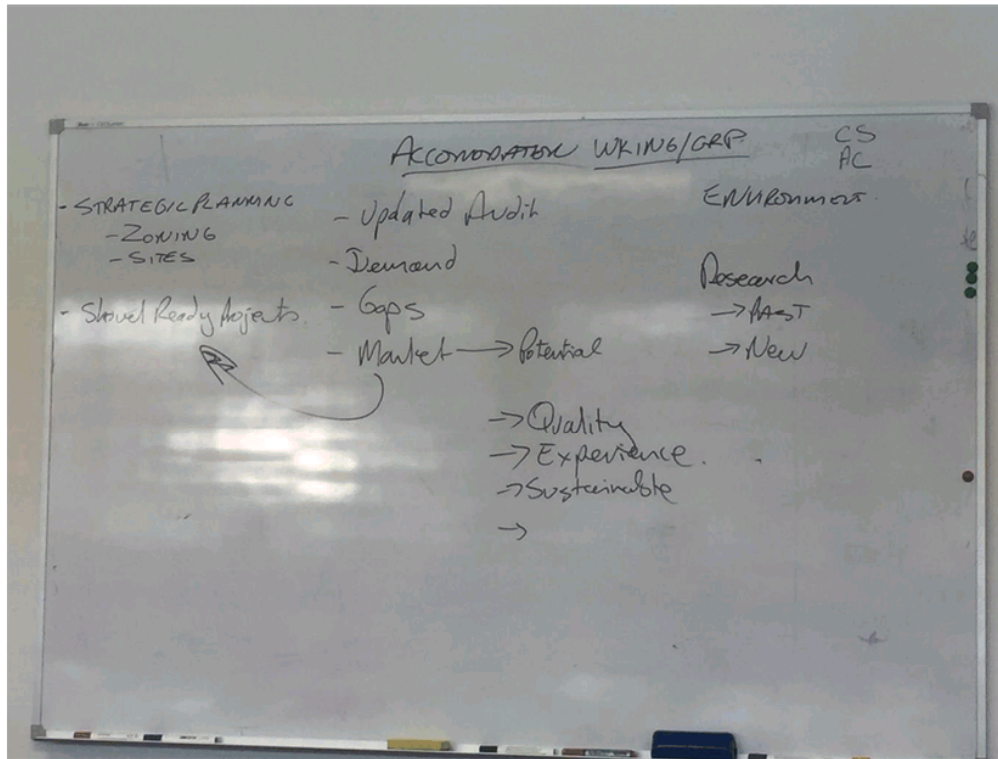 ACCOMODATION WKING/GRP
CS
AC
- STRATEGIC PLANNING
- ZONING
- SITES
- Shovel Ready Projects.
- Updated Audit
- Demand
- Gaps
- Market → Potential
→ Quality
→ Experience.
→ Sustainable
→
ENVIRONMENT.
Research
→ PAST
→ New